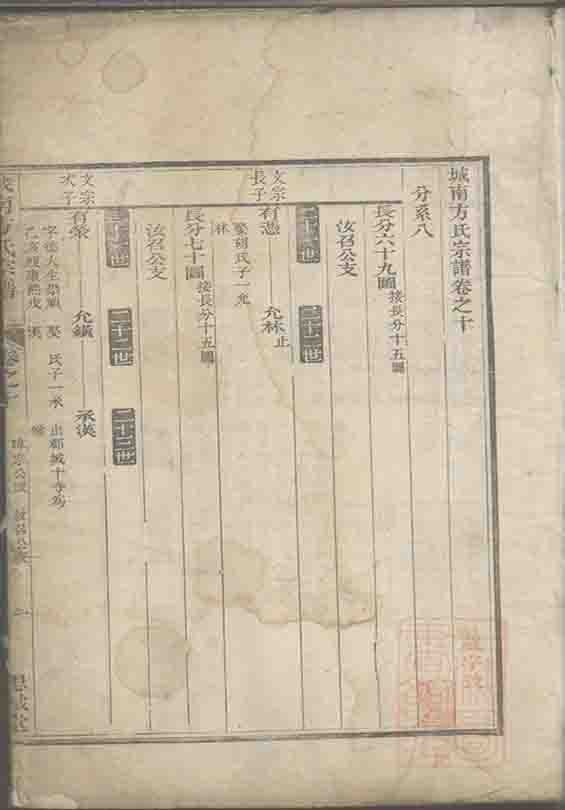 城南方氏宗譜卷之十
分系八
長分六十九圖 接長分十五圖
汝召公支
二十一世 二十二世
文宗長子 有憑 允林 止
娶胡氏子一允
林
長分七十圖 接長分十五圖
汝召公支
二十一世 二十二世 二十三世
文宗次子 有榮 允鐄 承漢
娶 氏子一承
漢
城南方氏宗譜 卷之十
汝召公支 一
思誠堂